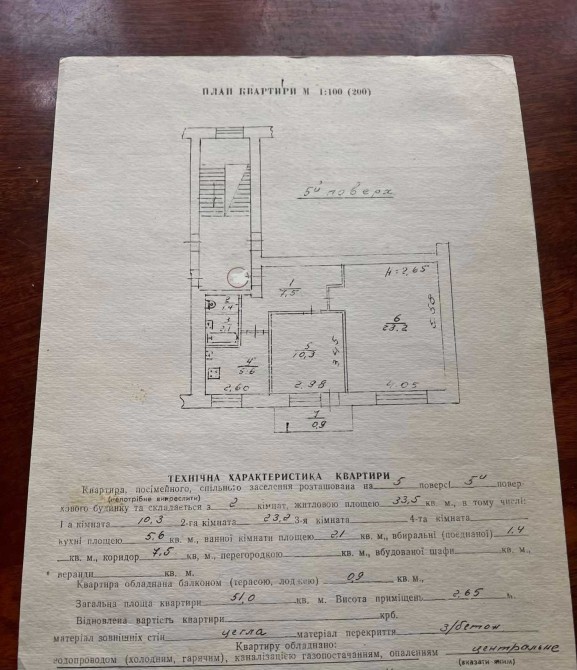 ПЛАН КВАРТИРИ М 1:100 (200)
5й поверх
H=2,65
1
7,5
2
1.4
3
2.1
4
5.6
2,60
5
10,3
3,45
2.98
6
23,2
5.58
4.05
7
0,9
ТЕХНІЧНА ХАРАКТЕРИСТИКА КВАРТИРИ
Квартира, посімейного, спільного заселення розташована на 5 поверсі 5й повер-
(непотрібне викреслити)
хового будинку та складається з 2 кімнат, житловою площею 33,5 кв. м., в тому числі:
1 а кімната 10,3 2-га кімната 23,2 3-я кімната 4-та кімната
кухні площею 5.6 кв. м., ванної кімнати площею 2.1 кв. м., вбиральні (поєднаної) 1,4
кв. м., коридор 7,5 кв, м., перегородкою кв. м., вбудованої шафи кв. м.,
веранди кв. м.
Квартира обладнана балконом (терасою, лоджією) 0,9 кв. м.,
Загальна площа квартири 51,0 кв. м. Висота приміщень 2,65 м.
Відновлена вартість квартири крб.
матеріал зовнішніх стін цегла матеріал перекриття з/бетон
Квартиру обладнано:
водопроводом (холодним, гарячим), каналізацією газопостачанням, опаленням центральне
(вказати яким)